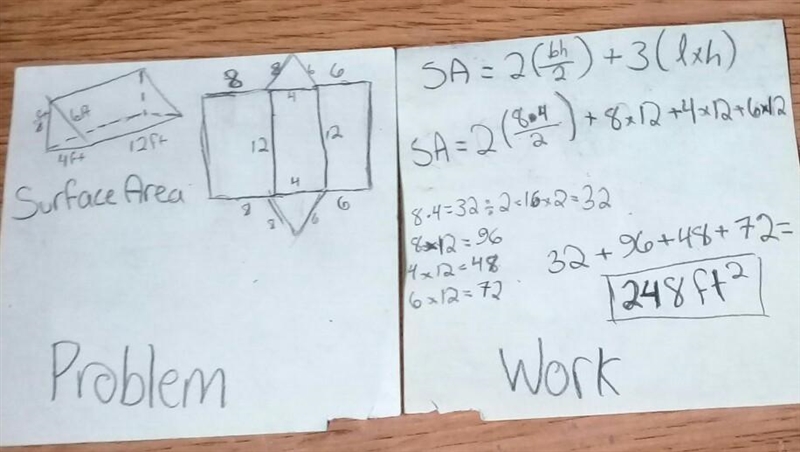 8
8
6
6
6ft
8
4
12
12
4ft
12ft
4
Surface Area
8
8
6
6
Problem
SA = 2(bh/2) + 3(l×h)
SA = 2(8•4/2) + 8×12+4×12+6×12
8•4=32÷2=16×2=32
8×12=96
4×12=48
6×12=72
32+96+48+72=
248ft²
Work